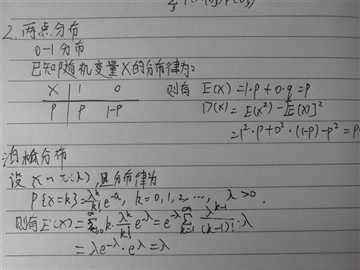 2. 两点分布
0-1分布
已知随机变量X的分布律为:
X 1 0 则有 E(X) = 1·p + 0·q = p
P P 1-P D(X) = E(X²) - [E(X)]²
= 1²·p + 0²·(1-p) - p² = p
泊松分布
设 X ~ π(λ), 且分布律为
P{X=k} = λ^k/k! e^-λ, k = 0, 1, 2, ⋯, λ > 0.
则有 E(X) = ∑_{k=0}^∞ k· λ^k/k! e^-λ = e^-λ ∑_{k=1}^∞ λ^{k-1}/(k-1)! ·λ
= λe^-λ·e^λ = λ